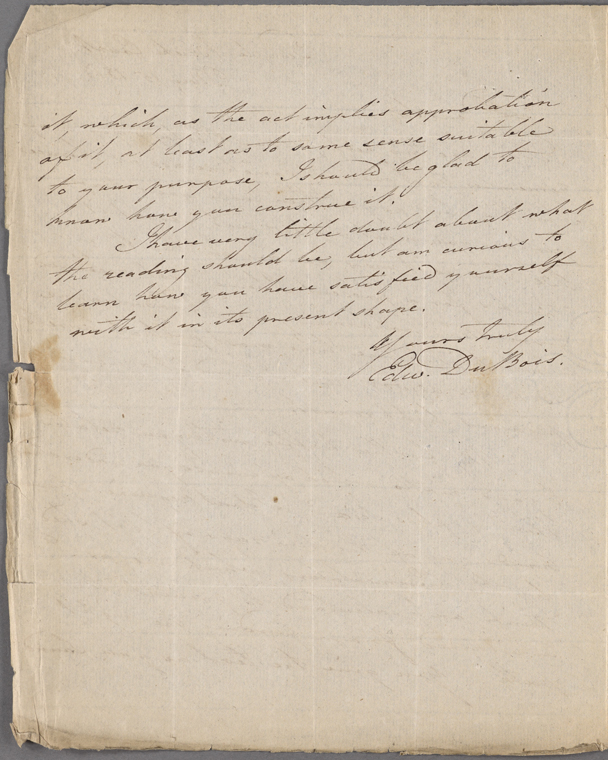 it, which, as the act implies approbation
of it, at least as to some sense suitable
to your purpose, I should be glad to
know how you construe it.
I have very little doubt about what
the reading should be, but am curious to
learn how you have satisfied yourself
with it in its present shape.
Yours truly
Edw. DuBois.